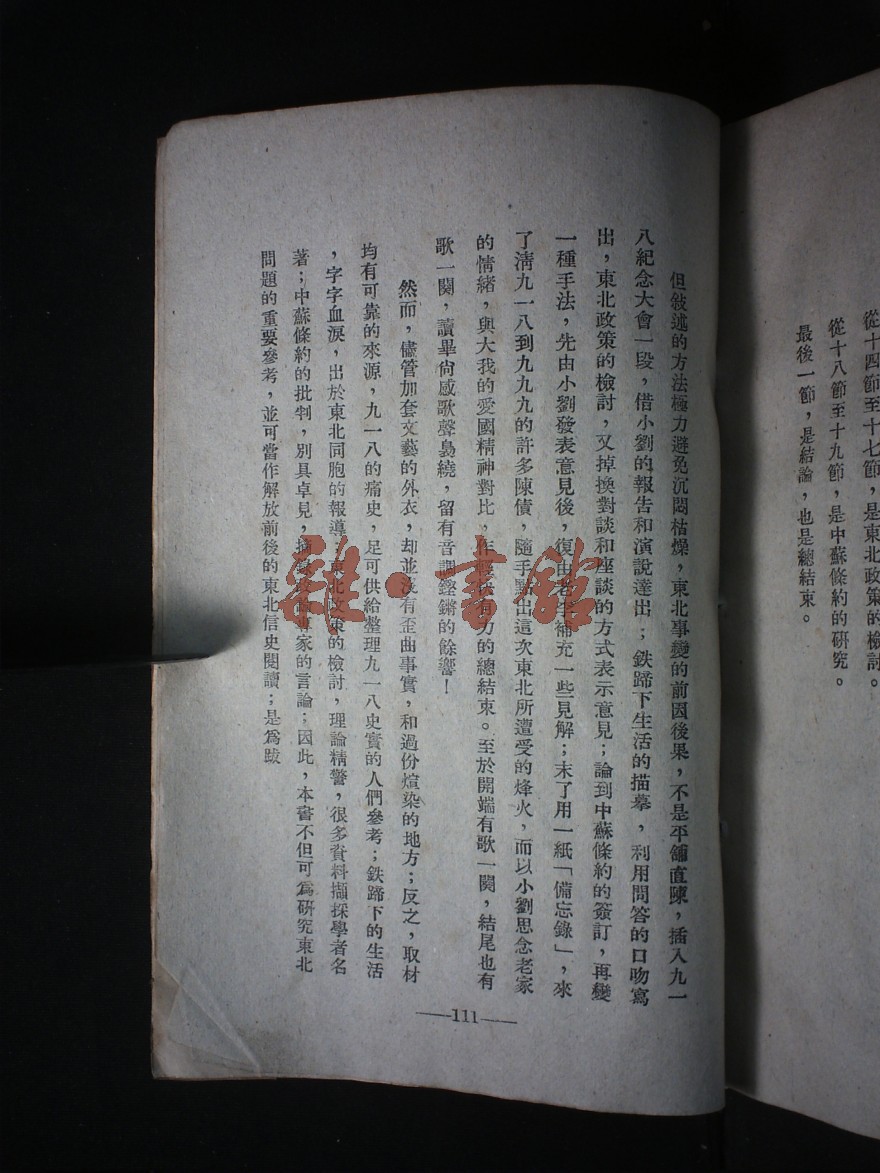 從十四節至十七節，是東北政策的檢討。
從十八節至十九節，是中蘇條約的研究。
最後一節，是結論，也是總結束。
但敍述的方法極力避免沉悶枯燥，東北事變的前因後果，不是平舖直陳，插入九一
八紀念大會一段，借小劉的報告和演說達出；鉄蹄下生活的描摹，利用問答的口吻寫
出，東北政策的檢討，又掉換對談和座談的方式表示意見；論到中蘇條約的簽訂，再變
一種手法，先由小劉發表意見後，復由老李補充一些見解；末了用一紙「備忘錄」，來
了淸九一八到九九九的許多陳債，隨手點出這次東北所遭受的烽火，而以小劉思念老家
的情緒，與大我的愛國精神對比，作輕快有力的總結束。至於開端有歌一闋，結尾也有
歌一闋，讀畢尙感歌聲裊繞，留有音調鏗鏘的餘響！
然而，儘管加套文藝的外衣，却並沒有歪曲事實，和過份煊染的地方；反之，取材
均有可靠的來源，九一八的痛史，足可供給整理九一八史實的人們參考；鉄蹄下的生活
，字字血淚，出於東北同胞的報導；東北政策的檢討，理論精警，很多資料擷採學者名
著；中蘇條約的批判，別具卓見，摘錄政論專家的言論；因此，本書不但可爲硏究東北
問題的重要參考，並可當作解放前後的東北信史閱讀；是爲跋
——111——
雜·書館